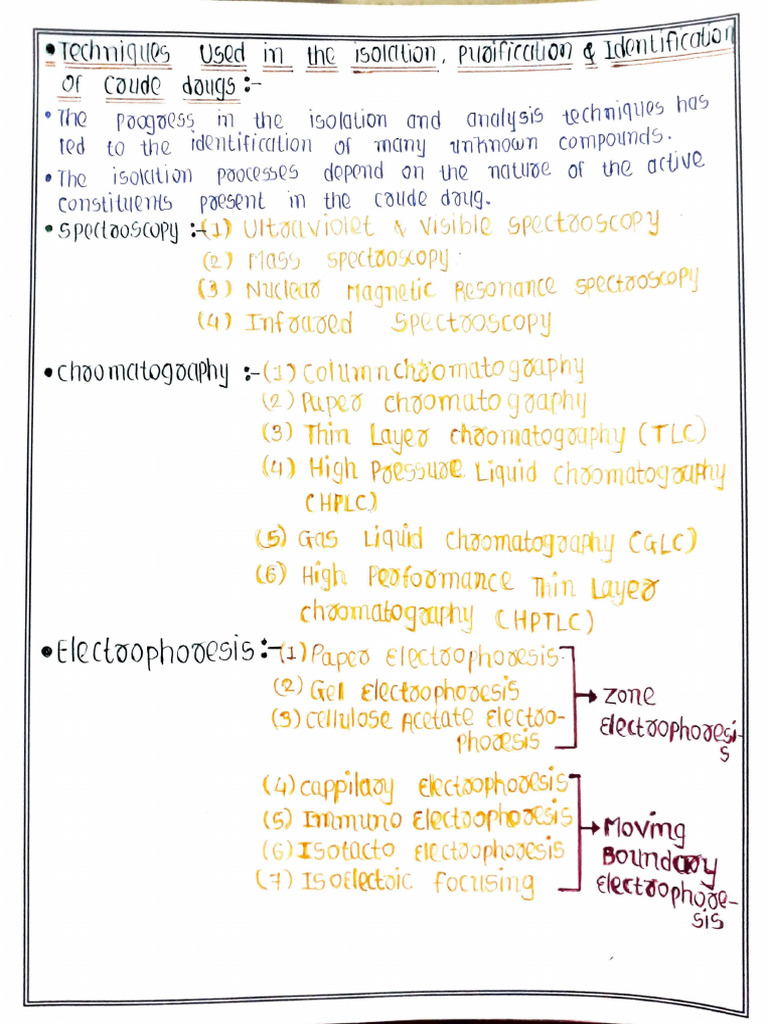 • Techniques Used in the isolation, Purification & Identification
Of Crude drugs :-
• The Progress in the isolation and analysis techniques has
led to the identification of many unknown compounds.
• The isolation processes depend on the nature of the active
constituents present in the crude drug.
• Spectroscopy :- (1) Ultraviolet & Visible Spectroscopy
(2) Mass Spectroscopy
(3) Nuclear Magnetic Resonance Spectroscopy
(4) Infrared Spectroscopy
• Chromatography :- (1) Column chromatography
(2) Paper chromatography
(3) Thin Layer chromatography (TLC)
(4) High Pressure Liquid Chromatography
(HPLC)
(5) Gas Liquid Chromatography (GLC)
(6) High Performance Thin Layer
chromatography (HPTLC)
• Electrophoresis :- (1) Paper Electrophoresis
(2) Gel Electrophoresis
(3) Cellulose Acetate Electro-
phoresis
→ Zone
Electrophoresi-
s
(4) Cappilary Electrophoresis
(5) Immuno Electrophoresis
(6) Isotacto Electrophoresis
(7) Isoelectric focusing
→ Moving
Boundary
Electrophore-
sis